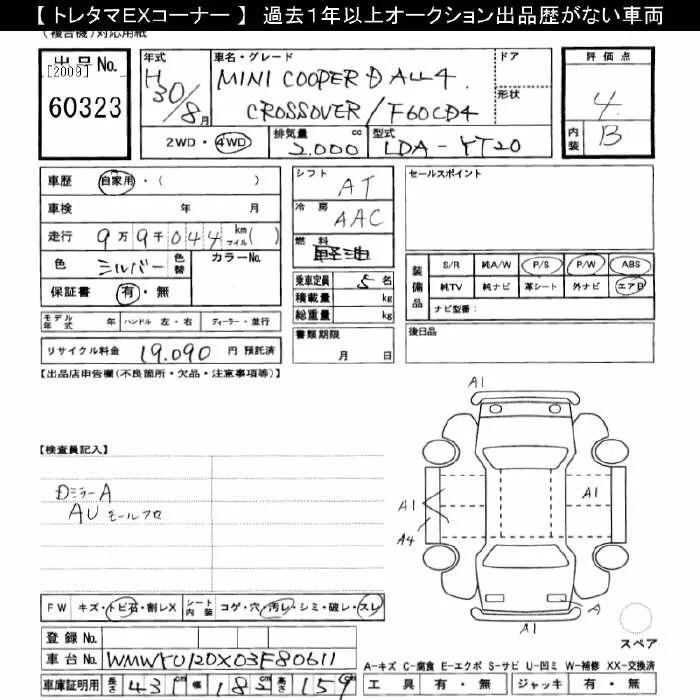 【 トレタマEXコーナー 】 過去1年以上オークション出品歴がない車両
(複合機)対応用紙
出品No.
[2009]
60323
年式
H30/8月
車名・グレード
MINI COOPER D ALL4
CROSSOVER/F60CD4
ドア
形状
評価点
4
内装 B
2WD・4WD
排気量 cc
2.000
型式
LDA-YT20
車歴 自家用・( )
車検 年 月
走行 9万9千044 km マイル( )
色 シルバー 色替
カラーNo.
保証書 有・無
シフト
AT
冷房
AAC
燃料
軽油
乗車定員 5名
積載量 kg
総重量 kg
書類期限
月 日
セールスポイント
装備品
S/R 純A/W P/S P/W ABS
純TV 純ナビ 革シート 外ナビ エアB
ナビ型番:
後日品
モデル年式 年 ハンドル 左・右 ディーラー・並行
リサイクル料金 19.090 円 預託済
【出品店申告欄(不良箇所・欠品・注意事項等)】
【検査員記入】
Dミラー A
AU モールフロ
A1
A1
A1
A4
A
A1
スペア
FW キズ・トビ石・割レX
シート内装 コゲ・穴・汚レ・シミ・破レ・スレ
登録No.
車台No. WMWYU120X03F80611
車庫証明用 長さ 431cm 幅 182cm 高さ 159
A-キズ C-腐食 E-エクボ S-サビ U-凹ミ W-補修 XX-交換済
工具 有・無 ジャッキ 有・無